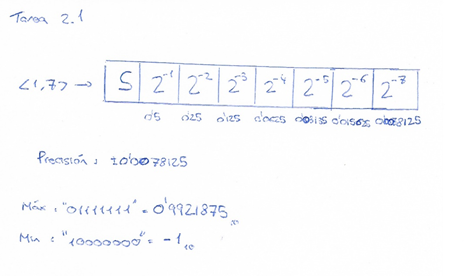 Tarea 2.1
<1,7> → S 2⁻¹ 2⁻² 2⁻³ 2⁻⁴ 2⁻⁵ 2⁻⁶ 2⁻⁷
0'5 0'25 0'125 0'0625 0'03125 0'015625 0'0078125
Precisión: 0'0078125
Máx: "01111111" = 0'9921875₁₀
Min: "10000000" = -1₁₀